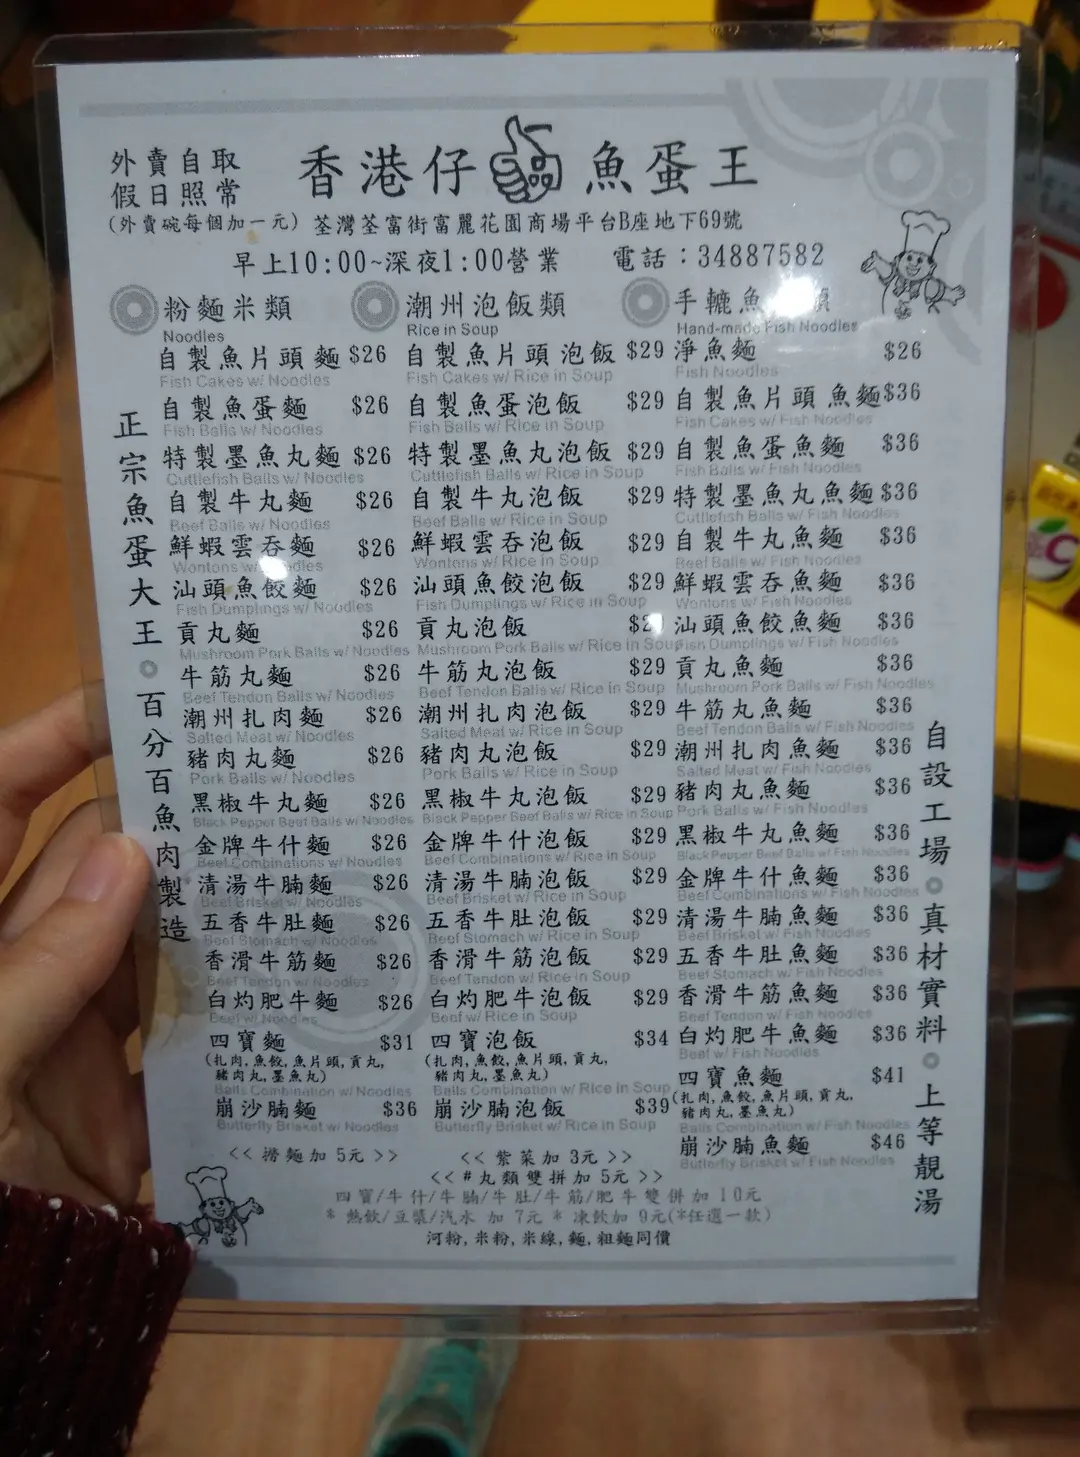 外賣自取
假日照常
(外賣碗每個加一元)
香港仔 魚蛋王
荃灣荃富街富麗花園商場平台B座地下69號
早上10:00~深夜1:00營業 電話：34887582
正宗魚蛋大王。百分百魚肉製造
粉麵米類
Noodles
自製魚片頭麵 $26
Fish Cakes w/ Noodles
自製魚蛋麵 $26
Fish Balls w/ Noodles
特製墨魚丸麵 $26
Cuttlefish Balls w/ Noodles
自製牛丸麵 $26
Beef Balls w/ Noodles
鮮蝦雲吞麵 $26
Wontons w/ Noodles
汕頭魚餃麵 $26
Fish Dumplings w/ Noodles
貢丸麵 $26
Mushroom Pork Balls w/ Noodles
牛筋丸麵 $26
Beef Tendon Balls w/ Noodles
潮州扎肉麵 $26
Salted Meat w/ Noodles
豬肉丸麵 $26
Pork Balls w/ Noodles
黑椒牛丸麵 $26
Black Pepper Beef Balls w/ Noodles
金牌牛什麵 $26
Beef Combinations w/ Noodles
清湯牛腩麵 $26
Beef Brisket w/ Noodles
五香牛肚麵 $26
Beef Stomach w/ Noodles
香滑牛筋麵 $26
Beef Tendon w/ Noodles
白灼肥牛麵 $26
Beef w/ Noodles
四寶麵 $31
(扎肉,魚餃,魚片頭,貢丸,
豬肉丸,墨魚丸)
Balls Combination w/ Noodles
崩沙腩麵 $36
Butterfly Brisket w/ Noodles
潮州泡飯類
Rice in Soup
自製魚片頭泡飯 $29
Fish Cakes w/ Rice in Soup
自製魚蛋泡飯 $29
Fish Balls w/ Rice in Soup
特製墨魚丸泡飯 $29
Cuttlefish Balls w/ Rice in Soup
自製牛丸泡飯 $29
Beef Balls w/ Rice in Soup
鮮蝦雲吞泡飯 $29
Wontons w/ Rice in Soup
汕頭魚餃泡飯 $29
Fish Dumplings w/ Rice in Soup
貢丸泡飯
Mushroom Pork Balls w/ Rice in Soup
牛筋丸泡飯 $29
Beef Tendon Balls w/ Rice in Soup
潮州扎肉泡飯 $29
Salted Meat w/ Rice in Soup
豬肉丸泡飯 $29
Pork Balls w/ Rice in Soup
黑椒牛丸泡飯 $29
Black Pepper Beef Balls w/ Rice in Soup
金牌牛什泡飯 $29
Beef Combinations w/ Rice in Soup
清湯牛腩泡飯 $29
Beef Brisket w/ Rice in Soup
五香牛肚泡飯 $29
Beef Stomach w/ Rice in Soup
香滑牛筋泡飯 $29
Beef Tendon w/ Rice in Soup
白灼肥牛泡飯 $29
Beef w/ Rice in Soup
四寶泡飯 $34
(扎肉,魚餃,魚片頭,貢丸,
豬肉丸,墨魚丸)
Balls Combination w/ Rice in Soup
崩沙腩泡飯 $39
Butterfly Brisket w/ Rice in Soup
手轆魚
Hand-made Fish Noodles
淨魚麵 $26
Fish Noodles
自製魚片頭魚麵 $36
Fish Cakes w/ Fish Noodles
自製魚蛋魚麵 $36
Fish Balls w/ Fish Noodles
特製墨魚丸魚麵 $36
Cuttlefish Balls w/ Fish Noodles
自製牛丸魚麵 $36
Beef Balls w/ Fish Noodles
鮮蝦雲吞魚麵 $36
Wontons w/ Fish Noodles
汕頭魚餃魚麵 $36
Fish Dumplings w/ Fish Noodles
貢丸魚麵 $36
Mushroom Pork Balls w/ Fish Noodles
牛筋丸魚麵 $36
Beef Tendon Balls w/ Fish Noodles
潮州扎肉魚麵 $36
Salted Meat w/ Fish Noodles
豬肉丸魚麵 $36
Pork Balls w/ Fish Noodles
黑椒牛丸魚麵 $36
Black Pepper Beef Balls w/ Fish Noodles
金牌牛什魚麵 $36
Beef Combinations w/ Fish Noodles
清湯牛腩魚麵 $36
Beef Brisket w/ Fish Noodles
五香牛肚魚麵 $36
Beef Stomach w/ Fish Noodles
香滑牛筋魚麵 $36
Beef Tendon w/ Fish Noodles
白灼肥牛魚麵 $36
Beef w/ Fish Noodles
四寶魚麵 $41
(扎肉,魚餃,魚片頭,貢丸,
豬肉丸,墨魚丸)
Balls Combination w/ Fish Noodles
崩沙腩魚麵 $46
Butterfly Brisket w/ Fish Noodles
自設工場。真材實料。上等靚湯
<< 撈麵加 5元 >> << 紫菜加 3元 >>
<< #丸類雙拼加 5元 >>
四寶/牛什/牛腩/牛肚/牛筋/肥牛雙併加10元
* 熱飲/豆漿/汽水 加 7元 * 凍飲加 9元(*任選一款)
河粉,米粉,米線,麵,粗麵同價